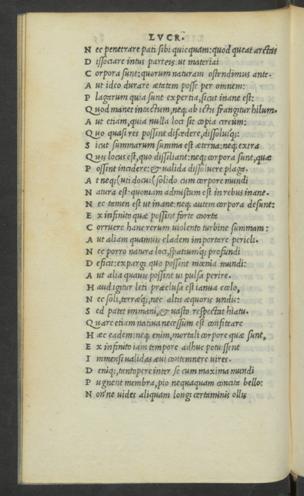 LVCR.
N ec penetrare pati sibi quicquam: quod queat arctus
D issociare intus parteis: ut materiai
C orpora sunt: quorum naturam ostendimus ante.
A ut ideo durare ætatem posse per omnem:
P lagarum quia sunt expertia, sicut inane est:
Q uod manet intactum, neq; ab ictu frangitur hilum.
A ut etiam, quia nulla loci sit copia circum:
Q uo quasi res possint discedere, dissoluiq;:
S icut summarum summa est æterna: neq; extra
Q uis locus est, quo dissiliant: neq; corpora sunt, quæ
P ossint incidere: & ualida dissoluere plaga.
A t neq; (uti docui) solido cum corpore mundi
N atura est: quoniam admistum est in rebus inane.
N ec tamen est ut inane: neq; autem corpora desunt:
E x infinito quæ possint forte coorta
C orruere hanc rerum uiolento turbine summam:
A ut aliam quamuis cladem importare pericli.
N ec porro natura loci, spatiumq; profundi
D eficit: expargi quo possint mœnia mundi:
A ut alia quauis possint ui pulsa perire.
H aud igitur leti præclusa est ianua cœlo,
N ec soli, terræq;, nec altis æquoris undis:
S ed patet immani, & uasto respectat hiatu.
Q uare etiam natiua necessum est confiteare
H æc eadem: neq; enim, mortali corpore quæ sunt,
E x infinito iam tempore adhuc potuissent
I mmensi ualidas æui contemnere uires.
D eniq; tantopere inter se cum maxima mundi
P ugnent membra, pio nequaquam concita bello:
N onne uides aliquam longi certaminis ollis